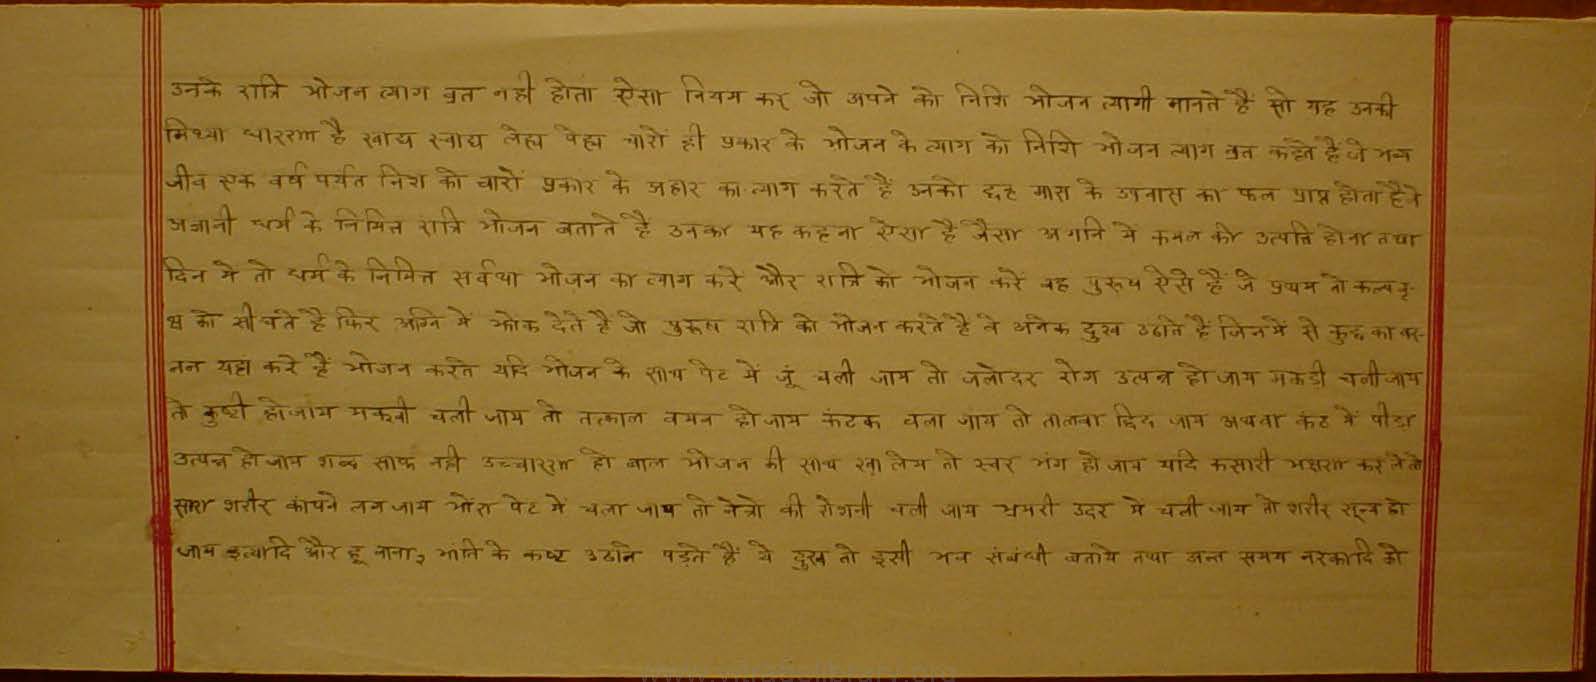 उनके रात्रि भोजन त्याग व्रत नही होता ऐसा नियम कर जो अपने को निशि भोजन त्यागी मानते हैं सो यह उनकी
मिथ्या धारणा है खाद्य स्वाद्य लेह्य पेह्य चारों ही प्रकार के भोजन के त्याग को निशि भोजन त्याग व्रत कहते हैं जे भव्य
जीव एक वर्ष पर्यंत निश को चारों प्रकार के अहार का त्याग करते हैं उनको छट मास के उपवास का फल प्राप्त होता है जे
अज्ञानी धर्म के निमित्त रात्रि भोजन बताते है उनका यह कहना ऐसा है जैसा अगनि मे कमल की उत्पत्ति होना तथा
दिन मे तो धर्म के निमित्त सर्वथा भोजन का त्याग करें और रात्रि को भोजन करें वह पुरूष ऐसे हैं जे प्रथम तो कल्पवृ-
क्ष को सीचते है फिर अग्नि मे झोक देते है जो पुरूष रात्रि को भोजन करते है वे अनेक दुख उठाते हैं जिनमें से कुछ का वर-
नन यहां करे हैं भोजन करते यदि भोजन के साथ पेट में जूं चली जाय तो जलोदर रोग उत्पन्न हो जाय मकडी चली जाय
तो कुष्टी होजाय मक्खी चली जाय तो तत्काल वमन हो जाय कंटक चला जाय तो तालवा छिद जाय अथवा कंठ में पीडा
उत्पन्न हो जाय शब्द साफ नही उच्चारण हो बाल भोजन की साथ खा लेय तो स्वर भंग हो जाय यदि कसारी भक्षण कर ले तो
सारा शरीर कांपने लग जाय भोंरा पेट में चला जाय तो नेत्रो की रोशनी चली जाय भ्रमरी उदर मे चली जाय तो शरीर सून्य हो
जाय इत्यादि और हू नाना २ भांति के कष्ट उठाने पड़ते हैं ये दुख तो इसी भव संबंधी बताये तथा अन्त समय नरकादि को